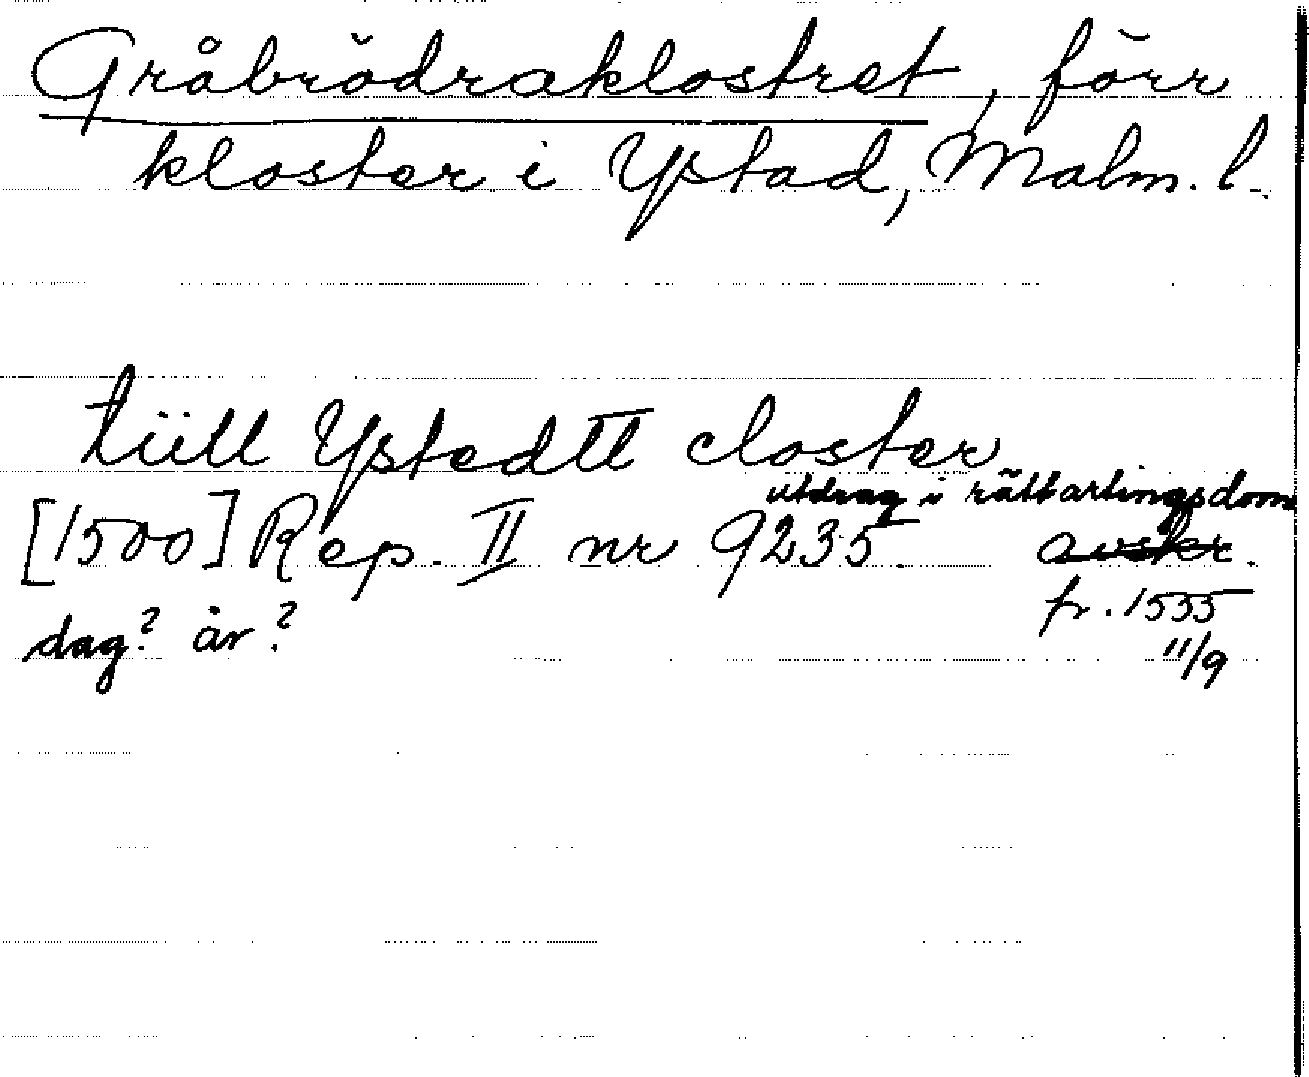 Gråbrödraklostret, förr
kloster i Ystad, Malm. l.
tiill Ystedtt closter
utdrag i rättartingsdom
[1500] Rep. II nr 9235. avskr.
fr. 1535
dag? år? 11/9